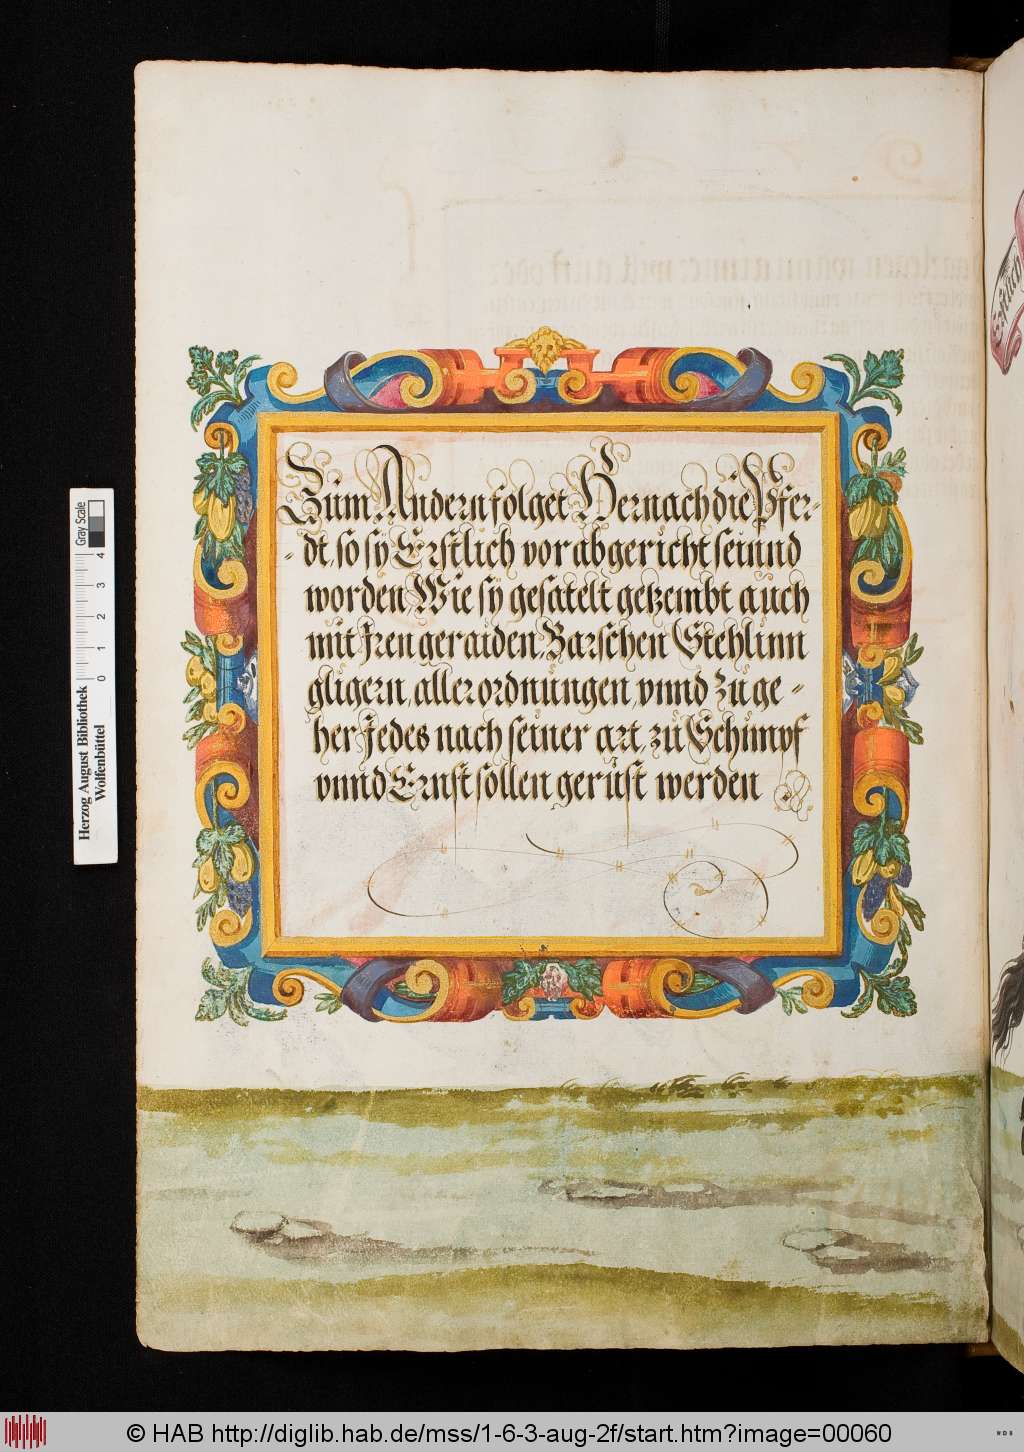 Zům Andern folget Hernach die Pfer-
dt, so sÿ Erstlich vor abgericht seinnd
worden, Wie sÿ gesatelt getzembt aůch
mit Iren geraiden, Barschen Stehlinn
gligern, aller ordnůngen, vnnd Zů ge-
her Jedes nach seiner art, zů Schimpf
vnnd Ernst sollen gerůst werden
Herzog August Bibliothek
Wolfenbüttel
0 1 2 3 4
Gray Scale
Erstlich
© HAB http://diglib.hab.de/mss/1-6-3-aug-2f/start.htm?image=00060